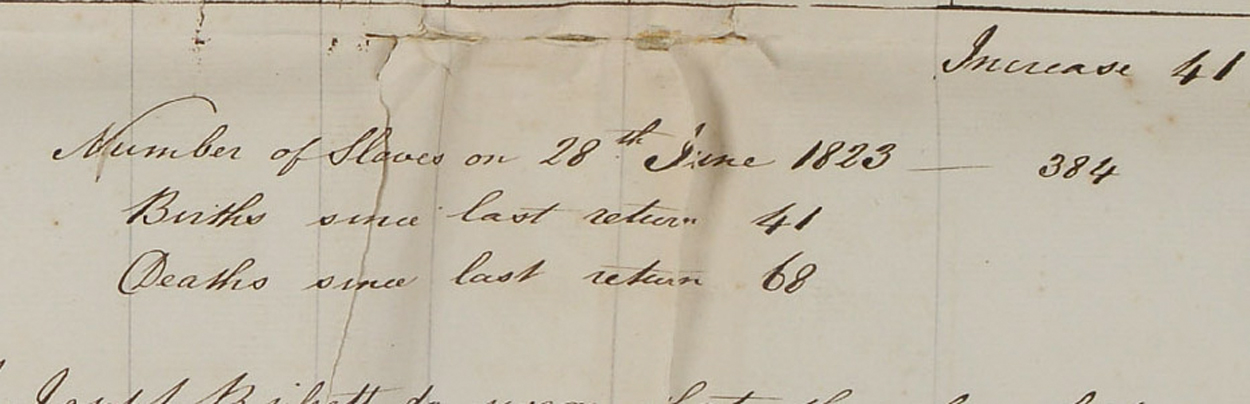 Increase 41
Number of Slaves on 28th June 1823 — 384
Births since last return 41
Deaths since last return 68